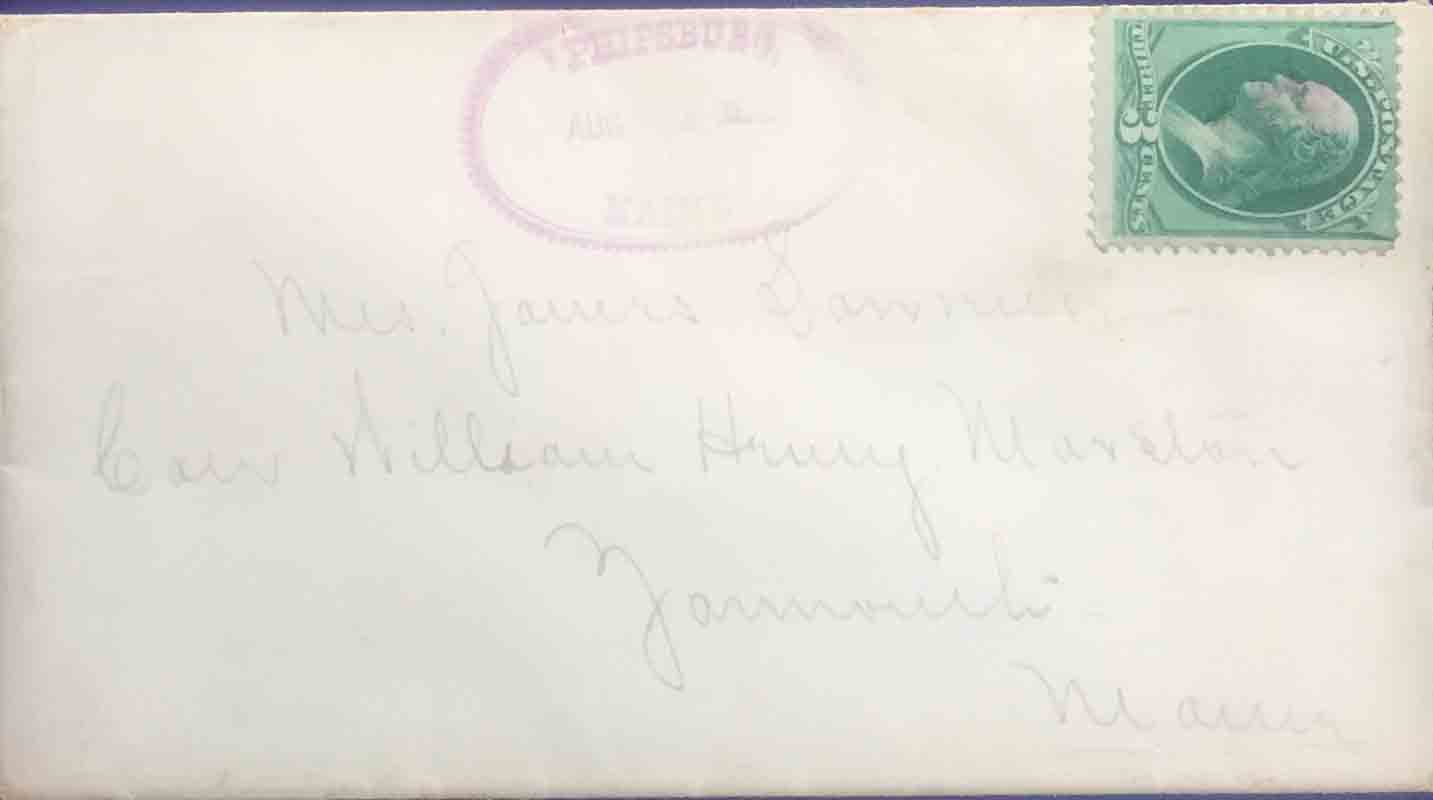 PHIPSBURG
AUG
MAINE
U.S. POSTAGE
THREE 3 CENTS
Mrs. James
Care William Henry Marston
Yarmouth
Maine